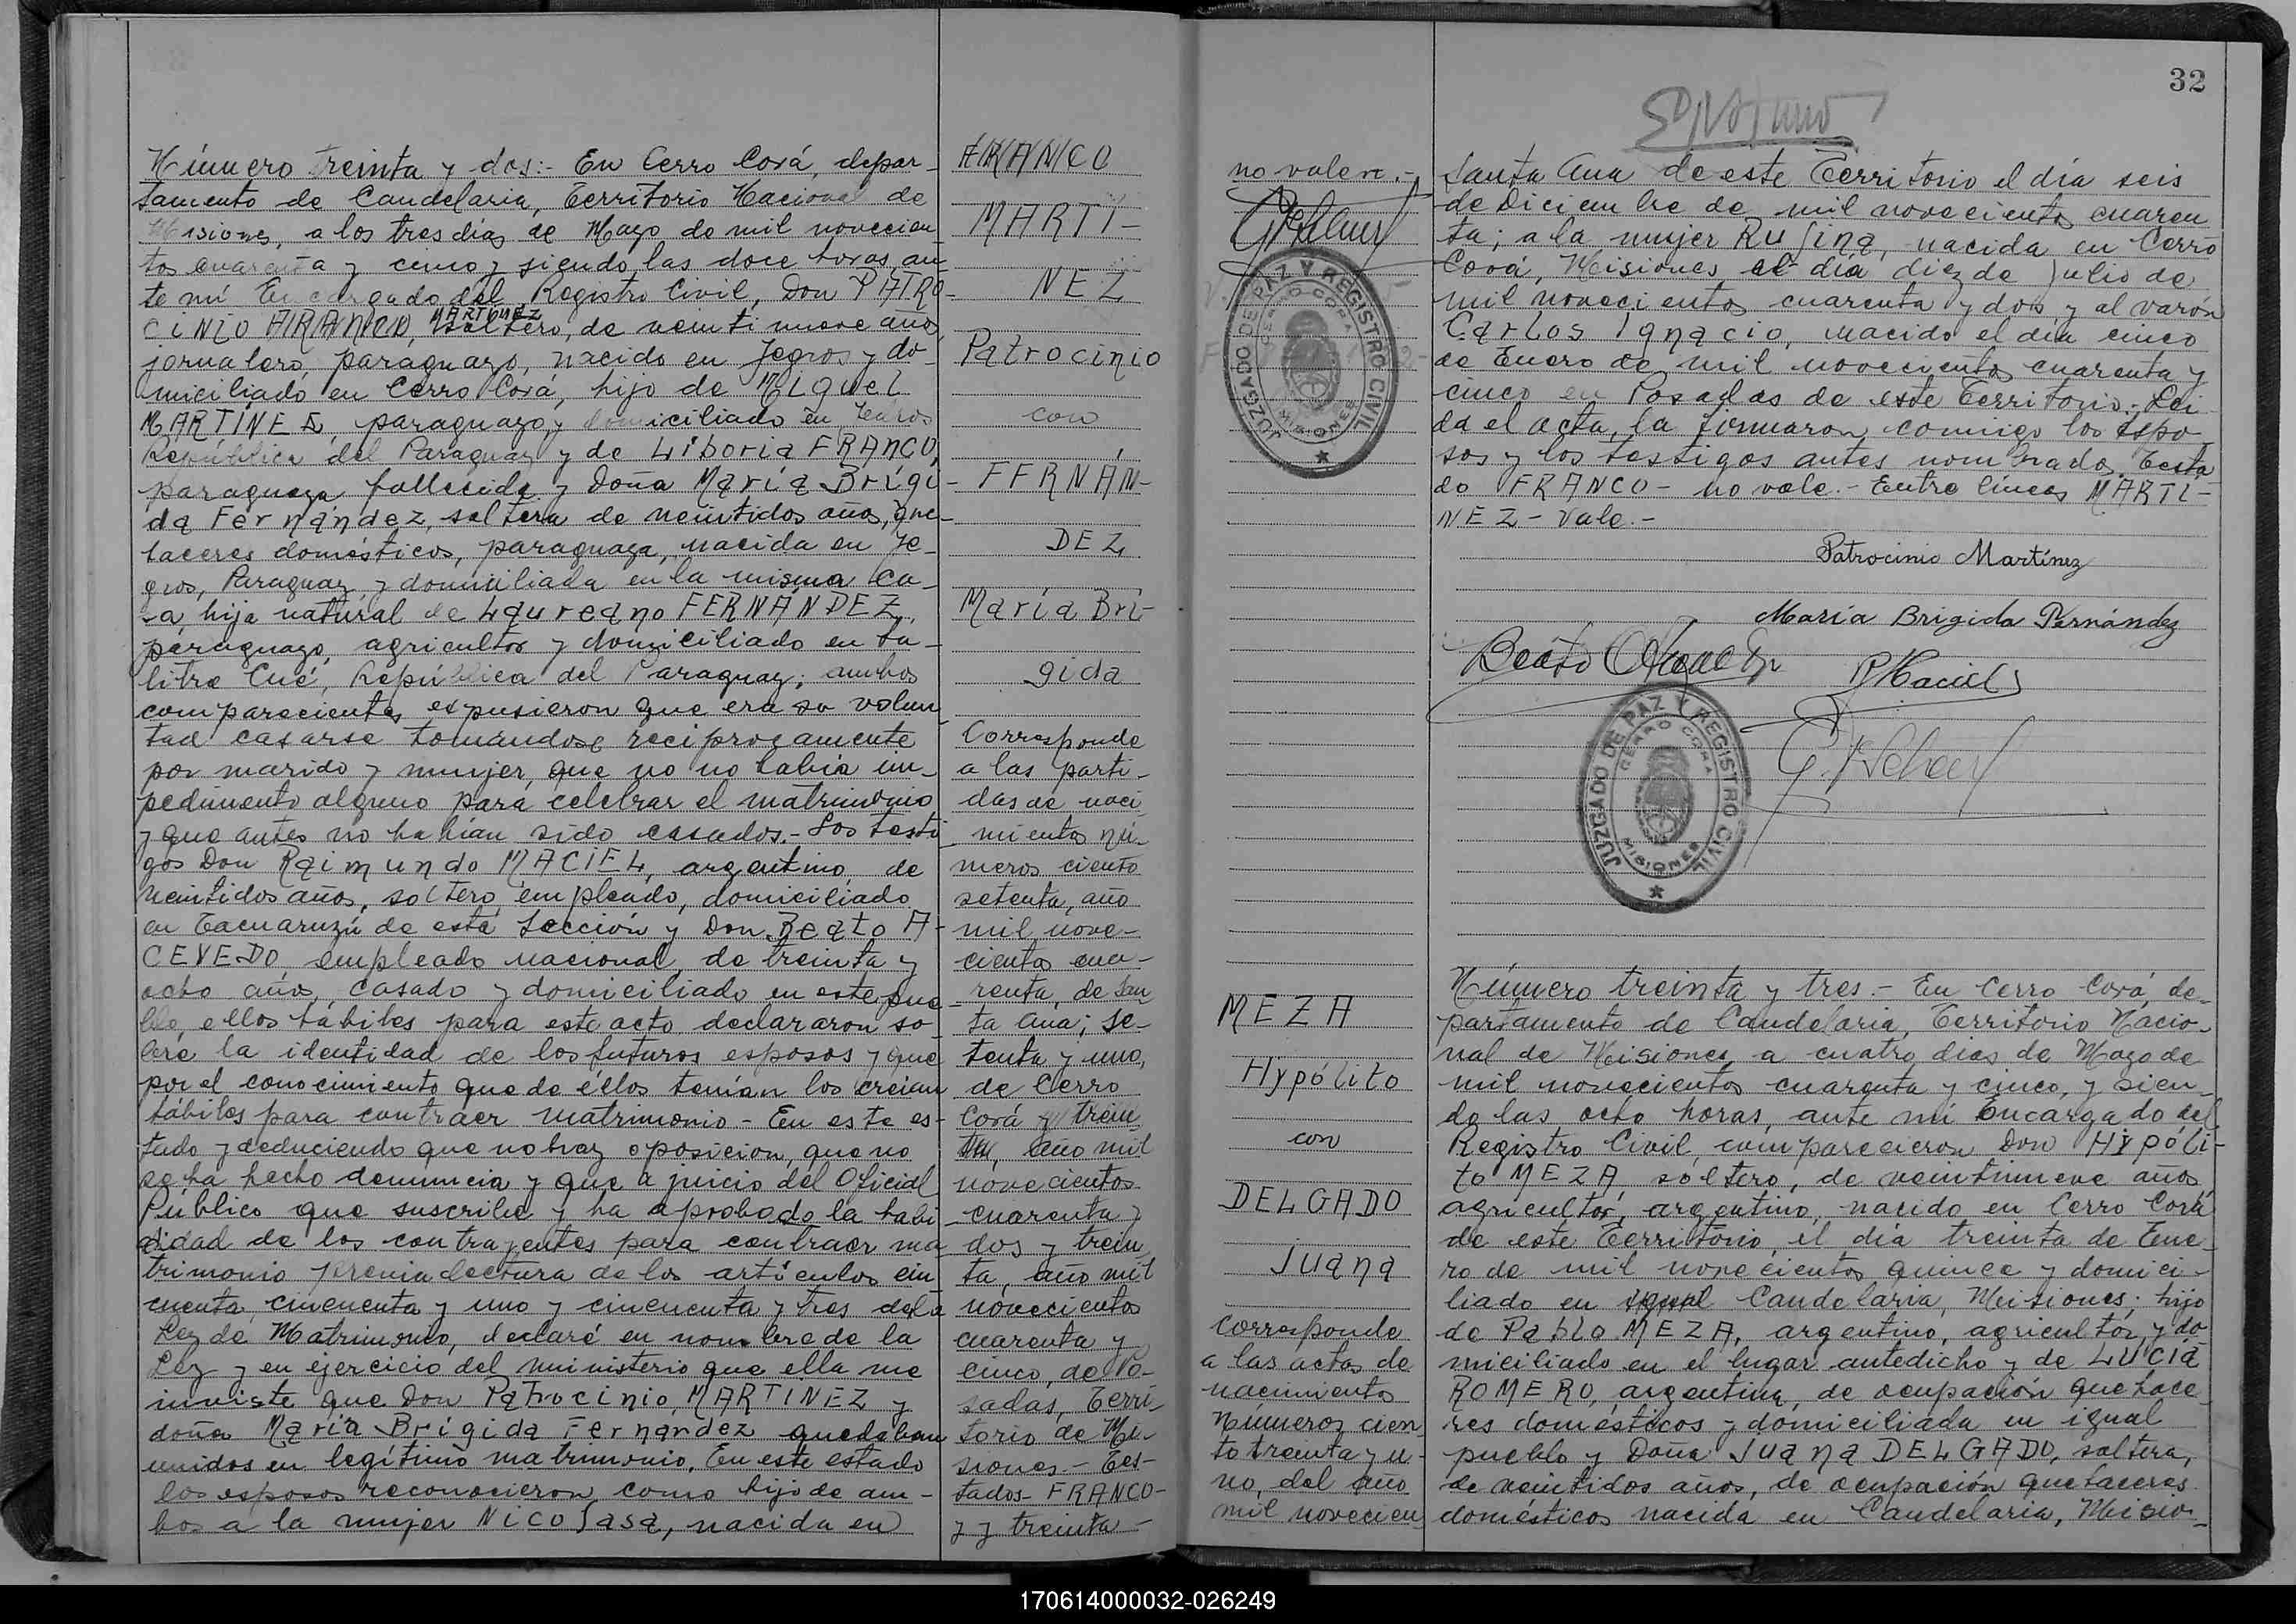 Número treinta y dos:- En Cerro Corá, depar-
tamento de Candelaria, Territorio Nacional de
Misiones, a los tres días de Mayo de mil novecien-
tos cuarenta y cinco y siendo las doce horas, an-
te mí Encargado del Registro Civil, Don PATRO-
CINIO FRANCO, MARTINEZ soltero, de veintinueve años,
jornalero, paraguayo, nacido en Jegros y do-
miciliado en Cerro Corá, hijo de Miguel
MARTÍNEZ, paraguayo y domiciliado en Jegros
República del Paraguay y de Liboria FRANCO,
paraguaya fallecida y Doña María Brígi-
da Fernández, soltera de veintidos años, que-
haceres domésticos, paraguaya, nacida en Je-
gros, Paraguay y domiciliada en la misma ca-
sa, hija natural de Laureano FERNÁNDEZ,
paraguayo, agricultor y domiciliado en
litre Cué, República del Paraguay; ambos
comparecientes expusieron que era su volun
tad casarse tomándose recíprocamente
por marido y mujer, que no no había im-
pedimento alguno para celebrar el matrimonio
y que antes no habían sido casados.- Los testi
gos Don Raimundo MACIEL, argentino de
veintidos años, soltero, empleado, domiciliado
en Tacuaruzú de esta Sección y Don Beato A-
CEVEDO, empleado nacional, de treinta y
ocho años, casado y domiciliado en este pue
blo, ellos hábiles para este acto declararon so-
bre la identidad de los futuros esposos y que
por el conocimiento que de ellos tenían los creían
hábiles para contraer matrimonio - En este es-
tado y deduciendo que no hay oposición, que no
se ha hecho denuncia y que a juicio del Oficial
Público que suscribe y ha aprobado la habi
lidad de los contrayentes para contraer ma
trimonio previa lectura de los artículos cin
cuenta, cincuenta y uno y cincuenta y tres de la
Ley de Matrimonio, declaré en nombre de la
Ley y en ejercicio del ministerio que ella me
inviste que Don Patrocinio MARTINEZ y
doña María Brígida Fernández quedaban
unidos en legítimo matrimonio. En este estado
los esposos reconocieron como hijo de am-
bos a la mujer Nicolasa, nacida en
FRANCO
MARTI-
NEZ
Patrocinio
con
FERNÁN-
DEZ
María Brí-
gida
Corresponde
a las parti-
das de naci
mientos nú-
meros ciento
setenta, año
mil nove-
cientos cua-
renta, de San
ta Ana; se-
tenta y uno,
de Cerro
Corá y trein
ta, año mil
novecientos
cuarenta y
dos y trein
ta, año mil
novecientos
cuarenta y
cinco, de Po-
sadas, Terri-
torio de Mi-
siones.- Tes-
tados- FRANCO-
y y treinta -
32
no valen.-
JUZGADO DE PAZ Y REGISTRO CIVIL
CERRO CORA
MISIONES
Santa Ana de este Territorio el día seis
de Diciembre de mil novecientos cuaren
ta; a la mujer Rufina, nacida en Cerro
Corá, Misiones el día diez de Julio de
mil novecientos cuarenta y dos y al varón
Carlos Ignacio, nacido el día cinco
de Enero de mil novecientos cuarenta y
cinco en Posadas de este Territorio.- Leí
da el acta, la firmaron conmigo los espo
sos y los testigos antes nombrados. Testa
do FRANCO- no vale.- Entre líneas MARTÍ-
NEZ- Vale.-
Patrocinio Martínez
María Brigida Fernández
Beato Acevedo
R Maciel
JUZGADO DE PAZ Y REGISTRO CIVIL
CERRO CORA
MISIONES
MEZA
Hypólito
con
DELGADO
Juana
Corresponde
a las actas de
nacimientos
Números cien
to treinta y u-
no, del año
mil novecien
Número treinta y tres.- En Cerro Corá, de-
partamento de Candelaria, Territorio Nacio-
nal de Misiones, a cuatro días de Mayo de
mil novecientos cuarenta y cinco, y sien-
do las ocho horas, ante mí Encargado del
Registro Civil, comparecieron Don Hypóli-
to MEZA, soltero, de veintinueve años
agricultor, argentino, nacido en Cerro Corá
de este Territorio, el día treinta de Ene-
ro de mil novecientos quince y domici-
liado en Candelaria, Misiones; hijo
de Pablo MEZA, argentino, agricultor y do
miciliado en el lugar antedicho y de LUCÍA
ROMERO, argentina, de ocupación quehace
res domésticos y domiciliada en igual
pueblo y Doña Juana DELGADO, soltera,
de veintidos años, de ocupación quehaceres
domésticos nacida en Candelaria, Misio-
170614000032-026249